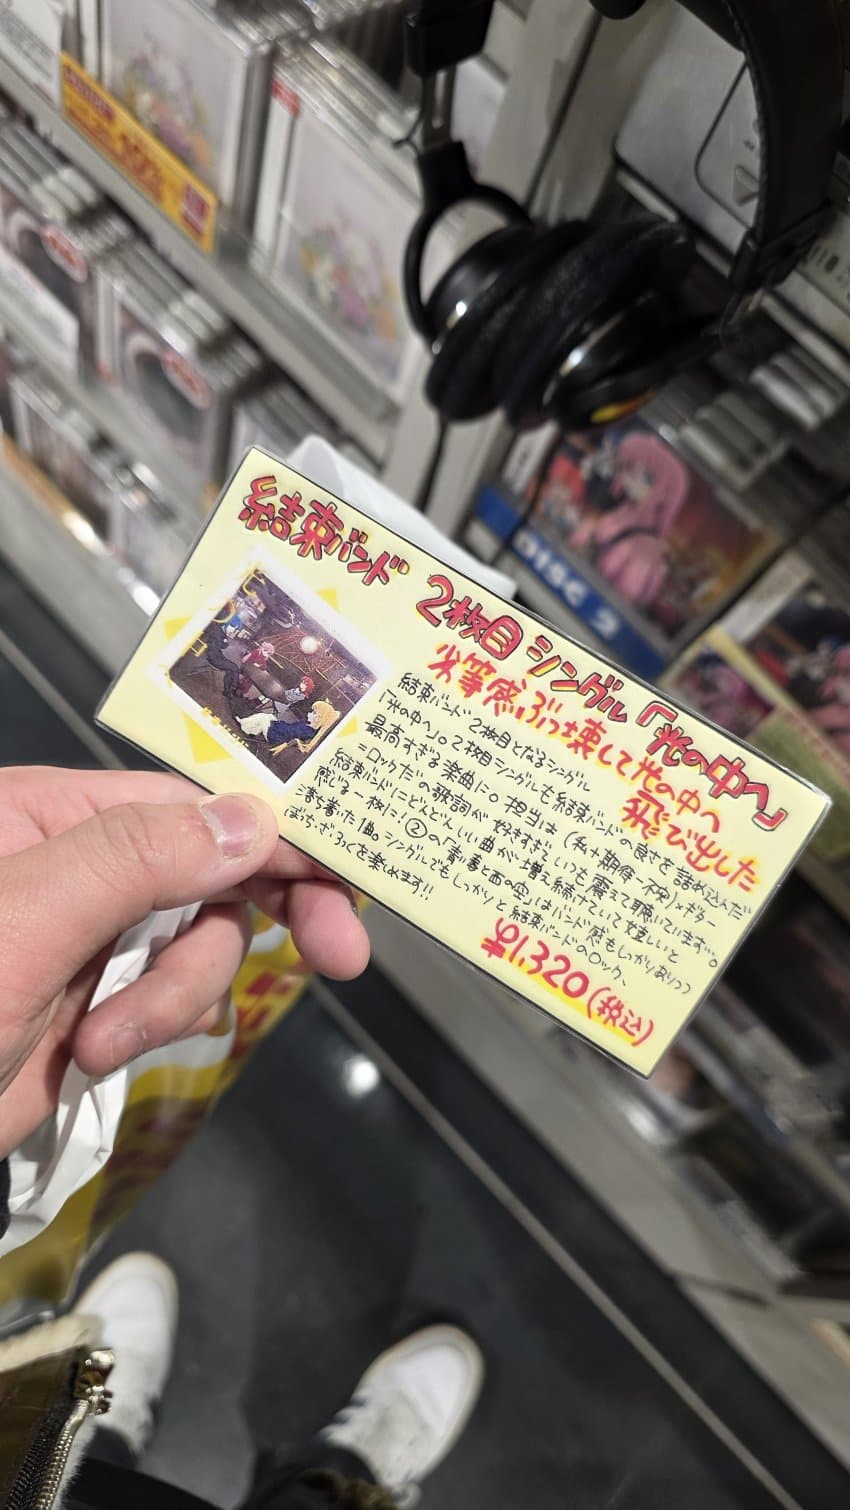 結束バンド 2枚目シングル「光の中へ」
劣等感ぶっ壊して光の中へ
飛び出した
結束バンド2枚目となるシングル
「光の中へ」。2枚目シングルも結束バンドの良さを詰め込んだ
最高すぎる楽曲に。担当は(私+期待-不安)×ギター
=ロックだの歌詞が好すぎ。いつも震えて聴いています…。
結束バンドにどんどんいい曲が増え続けていて嬉しいと
感じる一枚に!②の「青い春と西の空」はバンド感もしっかりありつつ
落ち着いた1曲。シングルでもしっかりと結束バンドのロック、
ぼっち・ざ・ろっくを楽しめます!!
¥1,320(税込)
DISC 2